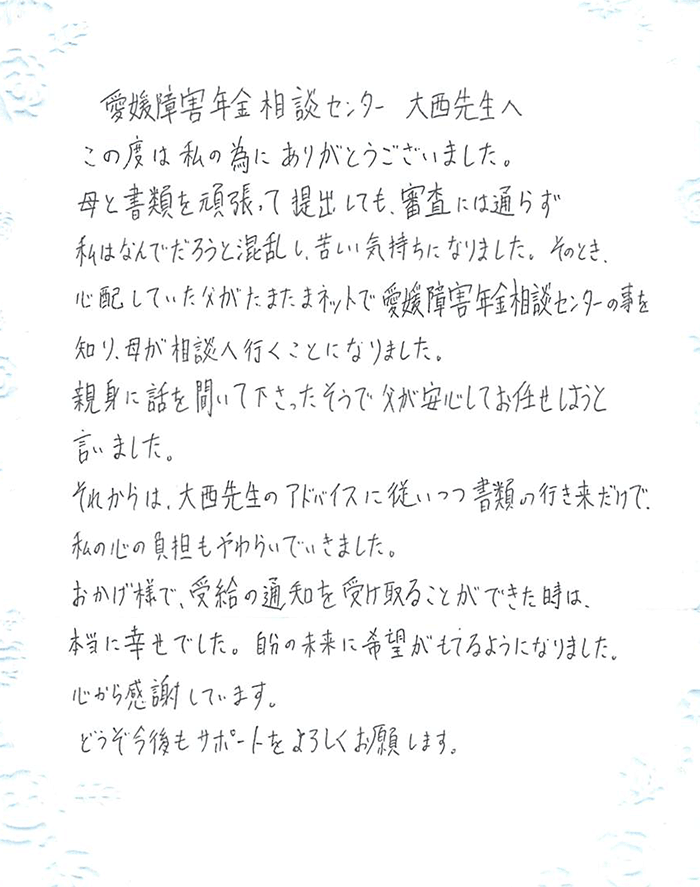 愛媛障害年金相談センター 大西先生へ
この度は私の為にありがとうございました。
母と書類を頑張って提出しても、審査には通らず
私はなんでだろうと混乱し、苦しい気持ちになりました。そのとき、
心配していた父がたまたまネットで愛媛障害年金相談センターの事を
知り、母が相談へ行くことになりました。
親身に話を聞いて下さったそうで父が安心してお任せしようと
言いました。
それからは、大西先生のアドバイスに従いつつ書類の行き来だけで、
私の心の負担もやわらいでいきました。
おかげ様で、受給の通知を受け取ることができた時は、
本当に幸せでした。自分の未来に希望がもてるようになりました。
心から感謝しています。
どうぞ今後もサポートをよろしくお願します。